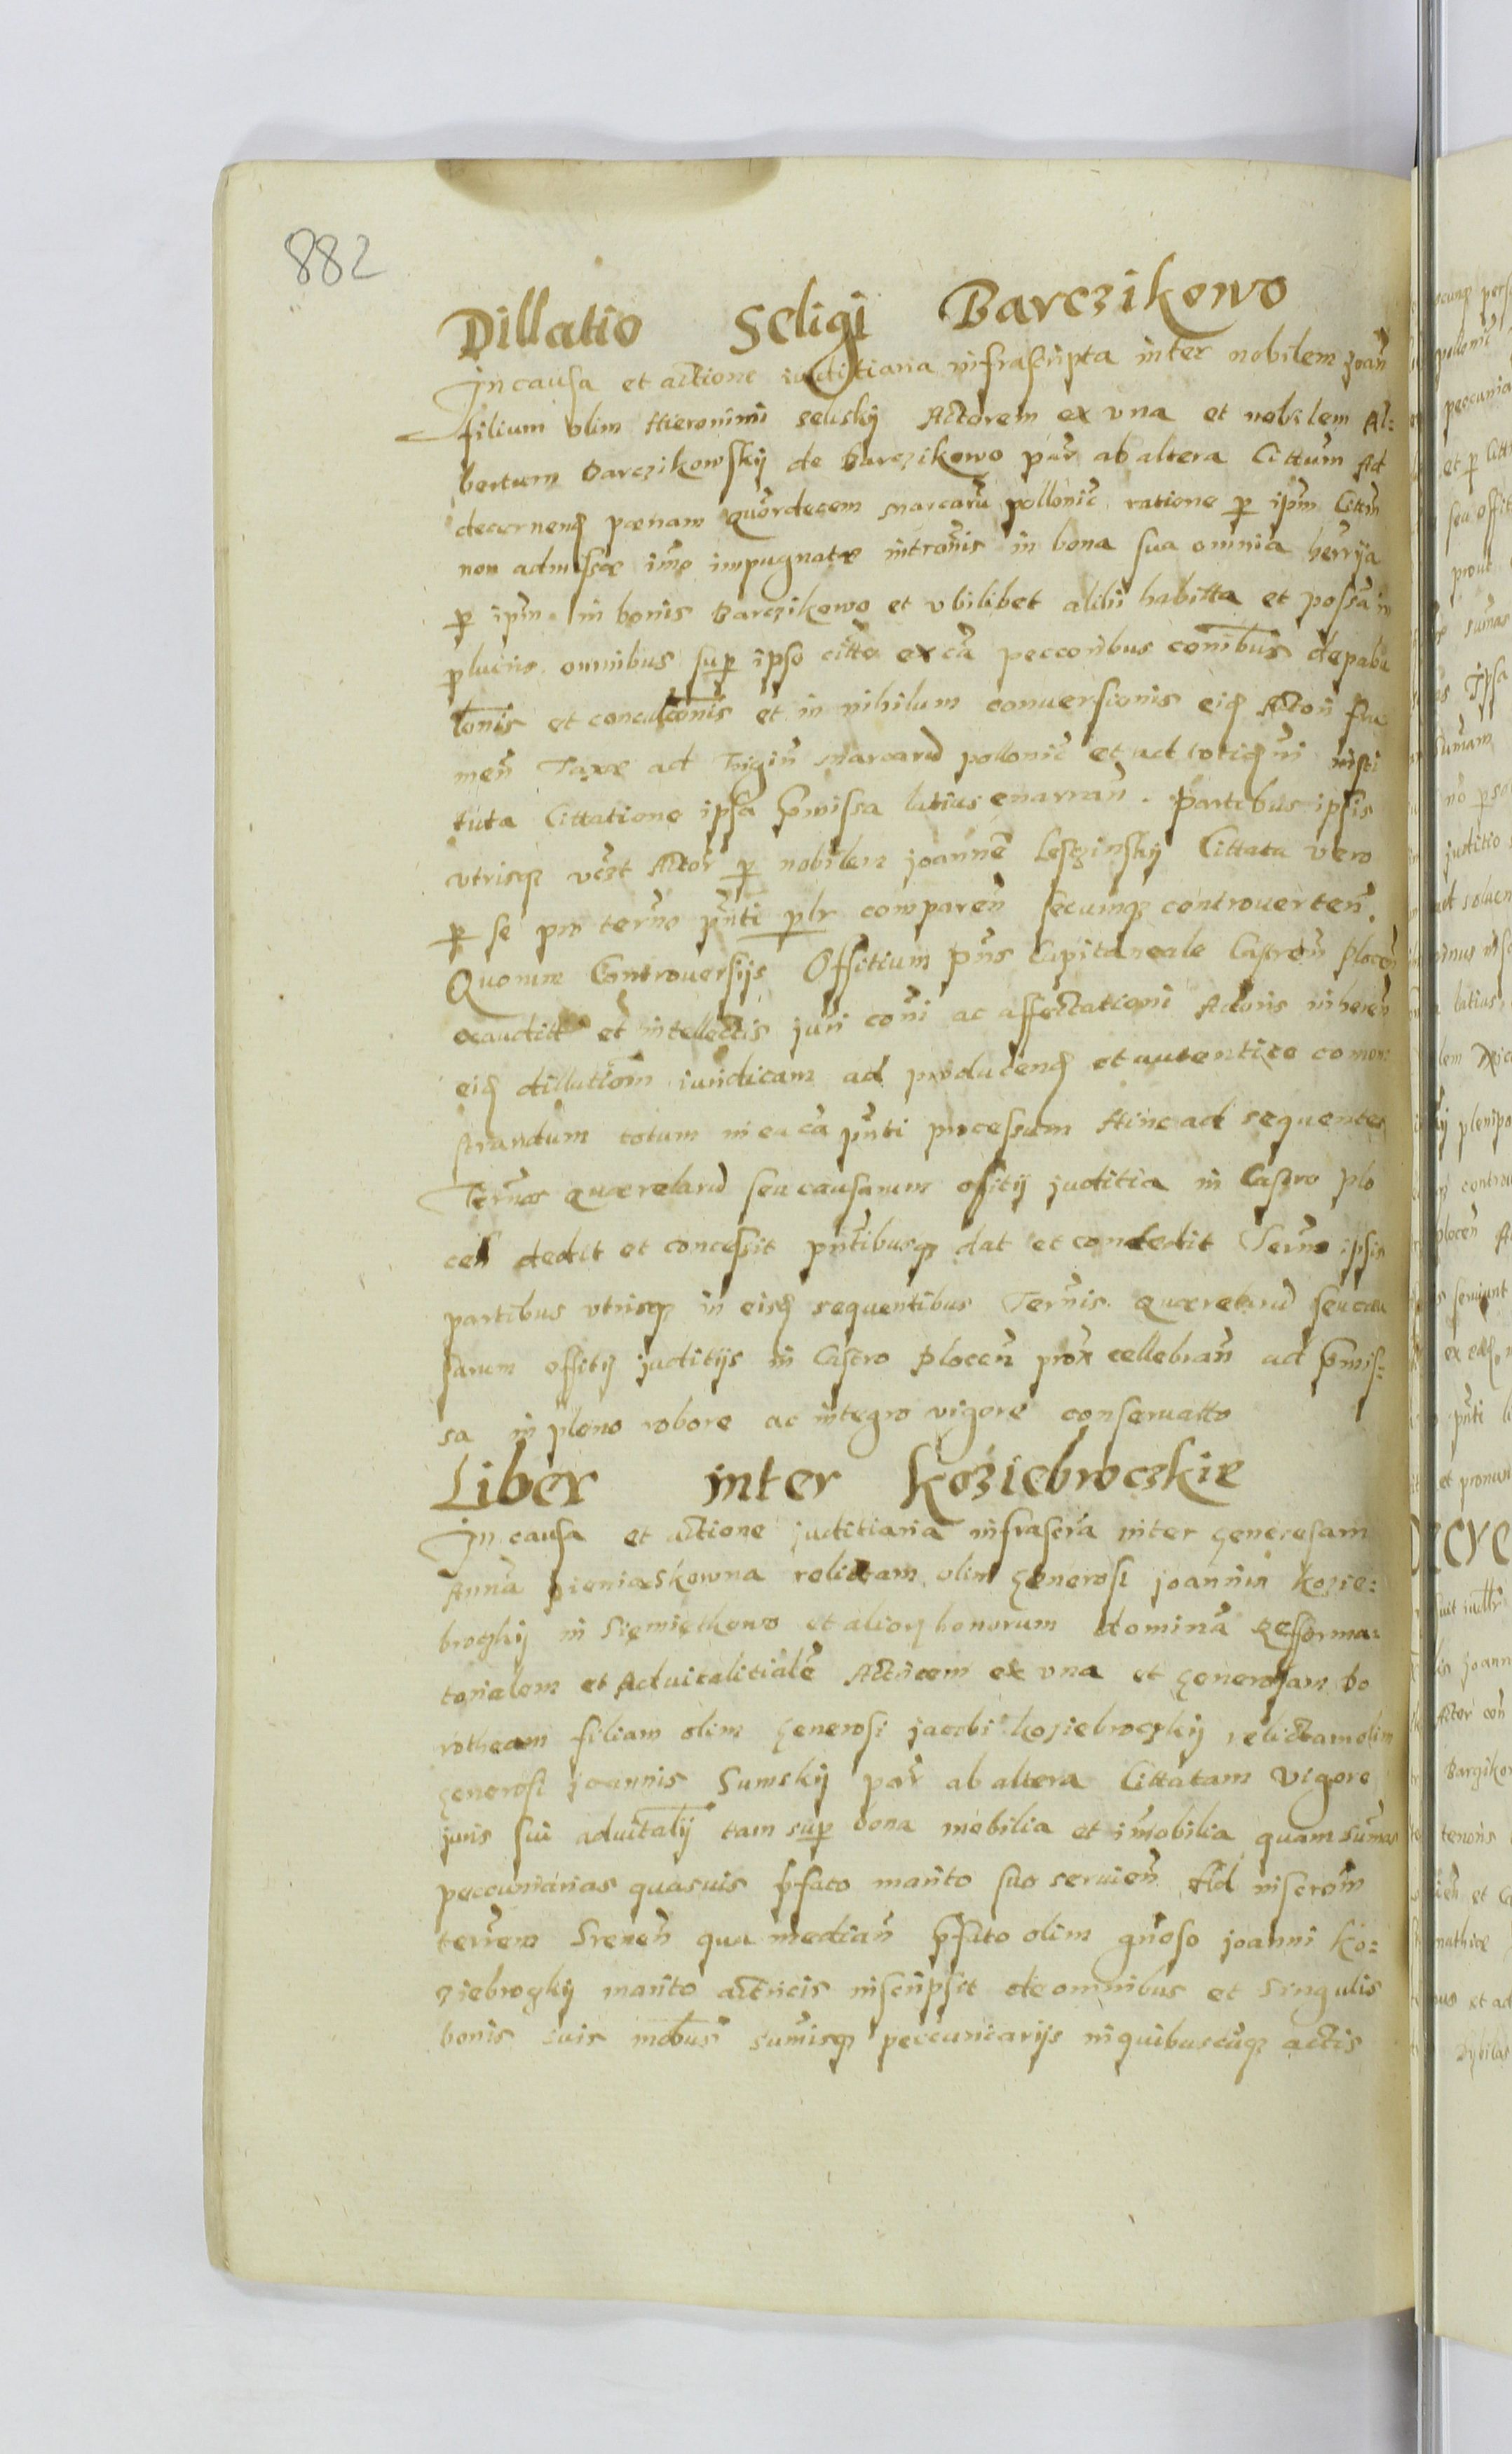 882
Dillatio Seligi Barczikowo
In causa et actione iuditiaria infrascripta inter nobilem Joañ
filium olim Hieronimi seliskij Actorem ex vna et nobilem Al-
bertum Barczikowskij de Barczikowo par̃ ab altera Cittum Ad
decernend pænam quordecem marcarũ pollonic̃ ratione p ipm̃ Cittm̃
non admissæ imo impugnatæ intronis in bona sua omnia herr̃ija
p ipm̃ in bonis Barczikowo et vbilibet alibi habitta et possa in
pluriis omnibus sup ipso citto ex cã peccoribus conibus depabu
lonis et conculconis et in nihilum conuersionis eid Actori fru
meñ Taxæ ad Trigiñ marcarũ pollonic̃ et ad totidm̃ insti
tuta Cittatione ipsa p̃missa latius enarrañ. Partibus ipsis
vtrisq vczt Actor̃ p nobilem joannẽ Lesczinskij Cittata vero
p se pro termo pñti plr compareñ secumq controuerteñ.
Quorum Controuersijs Offitium pñs Capitaneale Castreñ Ploceñ
exauditt et intellectis juri coñi ac affectationi Actoris inhereñ
eid dillatiom̃ iuridicam ad producend et autentice comon
strandum totum in ea cã pñti processum Hinc ad sequentes
Termos quærelarũ seu causarum offitij juditia in Castro Plo
ceñ dedit et concessit pñtibusq dat et condedit Termo ipsis
partibus vtrisq in eisd sequentibus Termis quærelarũ seu cau
sarum offitij juditijs in Castro Ploceñ prox cellebrañ ad p̃mis-
sa in pleno robore ac integro vigore conseruatto
Liber inter Koziebroczkie
In causa et actione juditiaria infrascra inter generosam
Annã pieniaskowna relictam olim generosi joannis kozie-
brogkij in Siemiętkowo et alior bonorum dominã Refforma-
torialem et Aduitalitialẽ Actricem ex vna et generosam Do
rotheam filiam olim generosi jacobi koziebroczkij relictam olim
generosi joannis Sumskij par̃ ab altera Cittatam vigore
juris sui aduitalij tam sup bona mobilia et im̃obilia quam sum̃as
peccuniarias quasuis p̃fato marito suo seruieñ Ad inscrom̃
terrem Sreneñ qua mediañ p̃fato olim gñoso joanni ko-
ziebrogkij marito actricis inscripsit de omnibus et singulis
bonis suis mobus sum̃isq peccuniarijs in quibuscuq actis